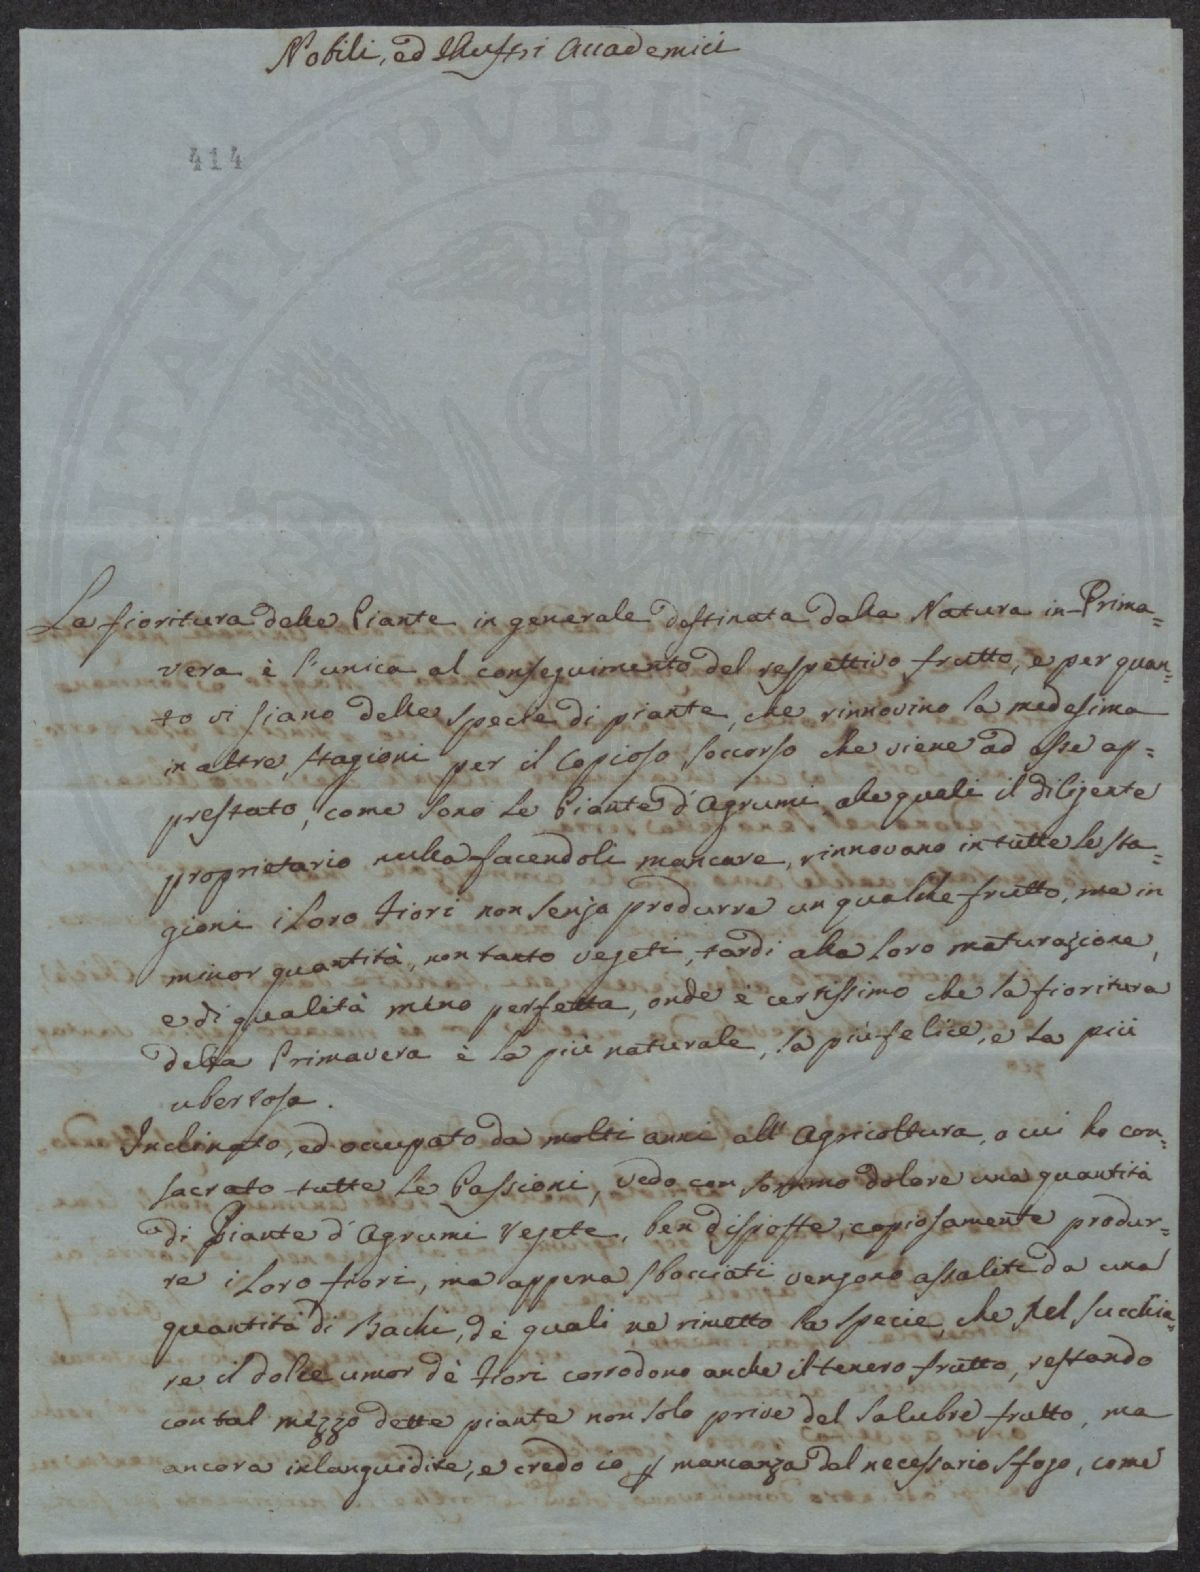 Nobili, ed Illustri Accademici
414
La fioritura delle Piante in generale destinata dalla Natura in Prima=
vera è l'unica al conseguimento del respettivo frutto, e per quan=
to vi siano delle specie di piante, che rinnovino la medesima
in altre stagioni per il Copioso soccorso che viene ad esse ap=
prestato, come sono le Piante d'Agrumi, alle quali il diligente
proprietario nulla facendoli mancare, rinnovano in tutte le sta=
gioni i loro Fiori non senza produrre un qualche frutto, ma in
minor quantità, non tanto vegeti, tardi alla loro maturazione,
e di qualità meno perfetta, onde è certissimo che la fioritura
della Primavera è la più naturale, la più felice, e la più
ubertosa.
Inclinato, ed occupato da molti anni all'Agricoltura, a cui ho con=
sacrato tutte le Passioni, vedo con sommo dolore una quantità
di Piante d'Agrumi Vegete, ben disposte, copiosamente produr=
re i loro fiori, ma appena sbocciati vengono assalite da una
quantità di Bachi, dè quali ne rimetto la specie, che nel succhia=
re il dolce umor dè Fiori corrodono anche il tenero frutto, restando
con tal mezzo dette piante non solo prive del salubre frutto, ma
ancora inlanguidite, e credo io p mancanza del necessario sfogo, come
PVBLICAE